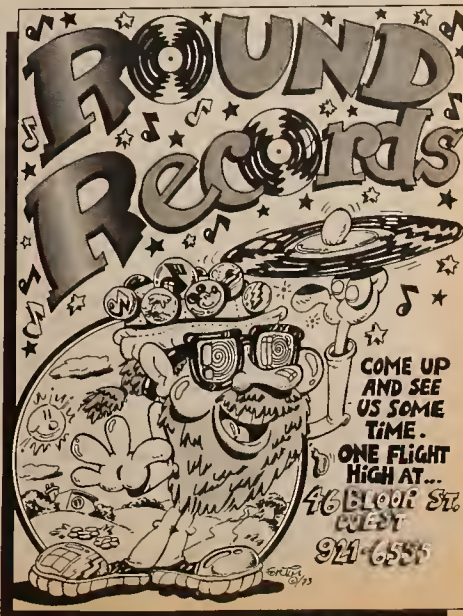 ROUND
Records
COME UP
AND SEE
US SOME
TiME.
ONE FLIGHT
HiGH AT...
46 BLOOR ST.
WEST
921-6555